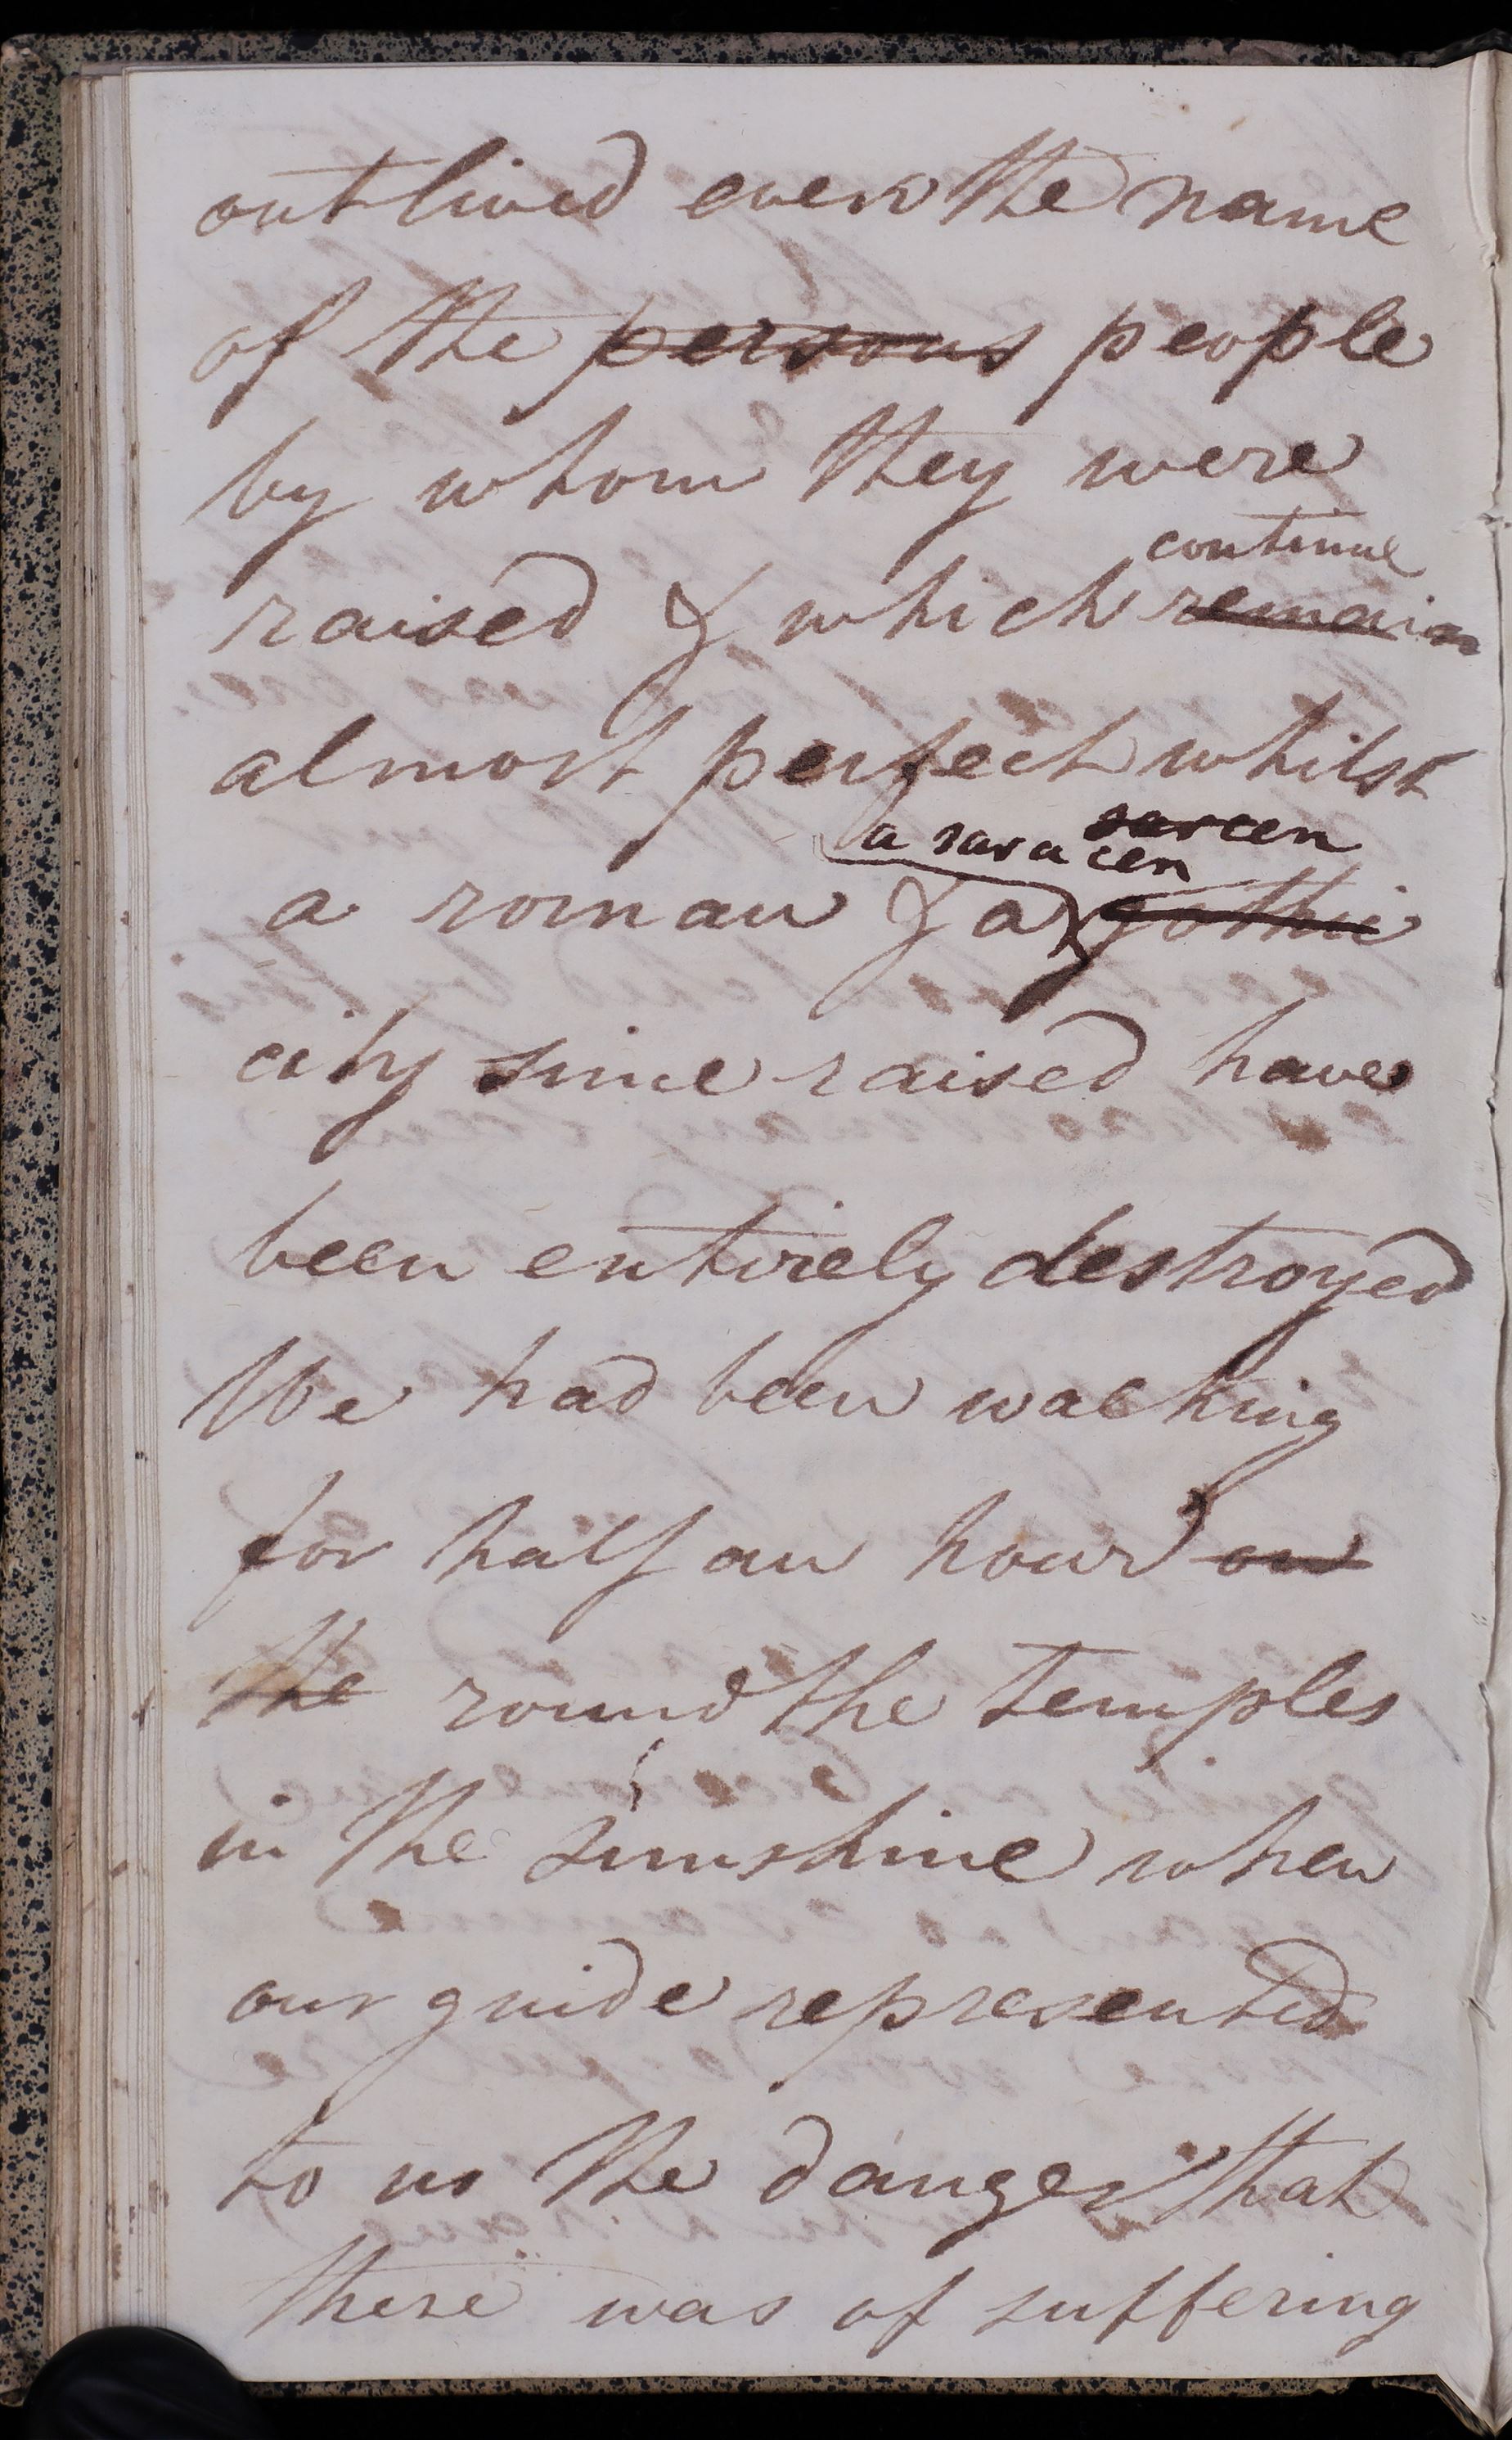 outlived even the name
of the persons people
by whom they were
continue
raised & which remain
almost perfect whilst
sarcen
a saracen
a roman & a gothic
city since raised have
been entirely destroyed
We had been walking
for half an hour on
the round the temples
in the sunshine when
our guide represented
to us the danger that
there was of suffering